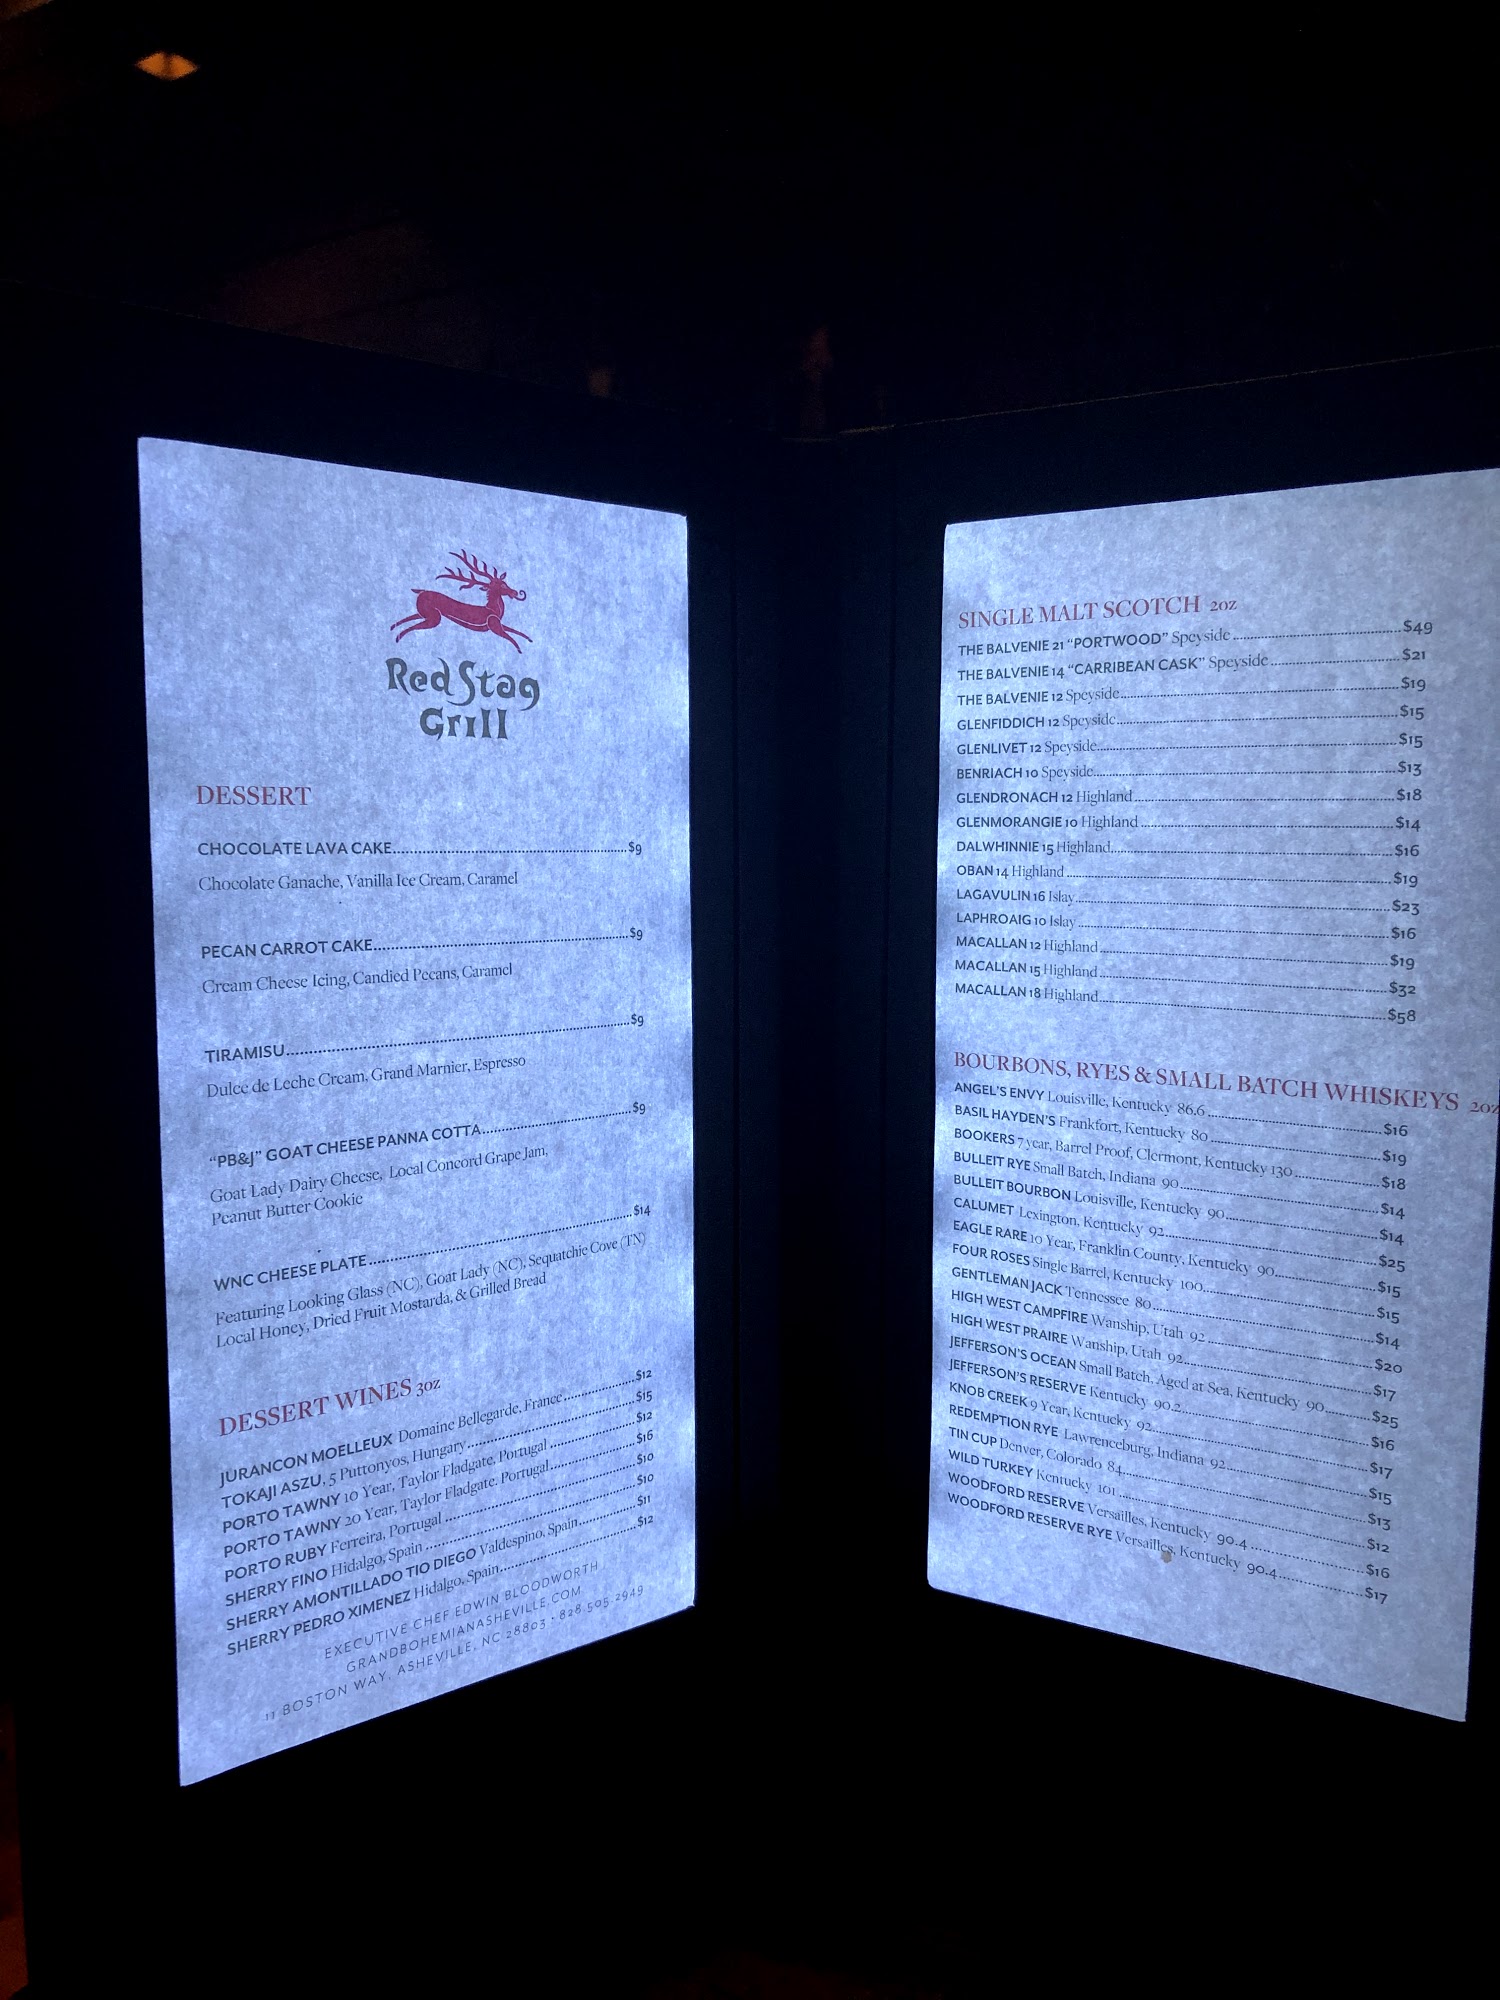 Red Stag
Grill
DESSERT
CHOCOLATE LAVA CAKE....$9
Chocolate Ganache, Vanilla Ice Cream, Caramel
PECAN CARROT CAKE....$9
Cream Cheese Icing, Candied Pecans, Caramel
TIRAMISU....$9
Dulce de Leche Cream, Grand Marnier, Espresso
"PB&J" GOAT CHEESE PANNA COTTA....$9
Goat Lady Dairy Cheese, Local Concord Grape Jam,
Peanut Butter Cookie
WNC CHEESE PLATE....$14
Featuring Looking Glass (NC), Goat Lady (NC), Sequatchie Cove (TN)
Local Honey, Dried Fruit Mostarda, & Grilled Bread
DESSERT WINES 3oz
JURANCON MOELLEUX Domaine Bellegarde, France....$12
TOKAJI ASZU, 5 Puttonyos, Hungary....$15
PORTO TAWNY 10 Year, Taylor Fladgate, Portugal....$12
PORTO TAWNY 20 Year, Taylor Fladgate, Portugal....$16
PORTO RUBY Ferreira, Portugal....$10
SHERRY FINO Hidalgo, Spain....$10
SHERRY AMONTILLADO TIO DIEGO Valdespino, Spain....$11
SHERRY PEDRO XIMENEZ Hidalgo, Spain....$12
EXECUTIVE CHEF EDWIN BLOODWORTH
GRANDBOHEMIANASHEVILLE.COM
11 BOSTON WAY, ASHEVILLE, NC 28803 • 828.505.2949
SINGLE MALT SCOTCH 2oz
THE BALVENIE 21 "PORTWOOD" Speyside....$49
THE BALVENIE 14 "CARRIBEAN CASK" Speyside....$21
THE BALVENIE 12 Speyside....$19
GLENFIDDICH 12 Speyside....$15
GLENLIVET 12 Speyside....$15
BENRIACH 10 Speyside....$13
GLENDRONACH 12 Highland....$18
GLENMORANGIE 10 Highland....$14
DALWHINNIE 15 Highland....$16
OBAN 14 Highland....$19
LAGAVULIN 16 Islay....$23
LAPHROAIG 10 Islay....$16
MACALLAN 12 Highland....$19
MACALLAN 15 Highland....$32
MACALLAN 18 Highland....$58
BOURBONS, RYES & SMALL BATCH WHISKEYS 2oz
ANGEL'S ENVY Louisville, Kentucky 86.6....$16
BASIL HAYDEN'S Frankfort, Kentucky 80....$19
BOOKERS 7 year, Barrel Proof, Clermont, Kentucky 130....$18
BULLEIT RYE Small Batch, Indiana 90....$14
BULLEIT BOURBON Louisville, Kentucky 90....$14
CALUMET Lexington, Kentucky 92....$25
EAGLE RARE 10 Year, Franklin County, Kentucky 90....$15
FOUR ROSES Single Barrel, Kentucky 100....$15
GENTLEMAN JACK Tennessee 80....$14
HIGH WEST CAMPFIRE Wanship, Utah 92....$20
HIGH WEST PRAIRE Wanship, Utah 92....$17
JEFFERSON'S OCEAN Small Batch, Aged at Sea, Kentucky 90....$25
JEFFERSON'S RESERVE Kentucky 90.2....$16
KNOB CREEK 9 Year, Kentucky 92....$17
REDEMPTION RYE Lawrenceburg, Indiana 92....$15
TIN CUP Denver, Colorado 84....$13
WILD TURKEY Kentucky 101....$12
WOODFORD RESERVE Versailles, Kentucky 90.4....$16
WOODFORD RESERVE RYE Versailles, Kentucky 90.4....$17